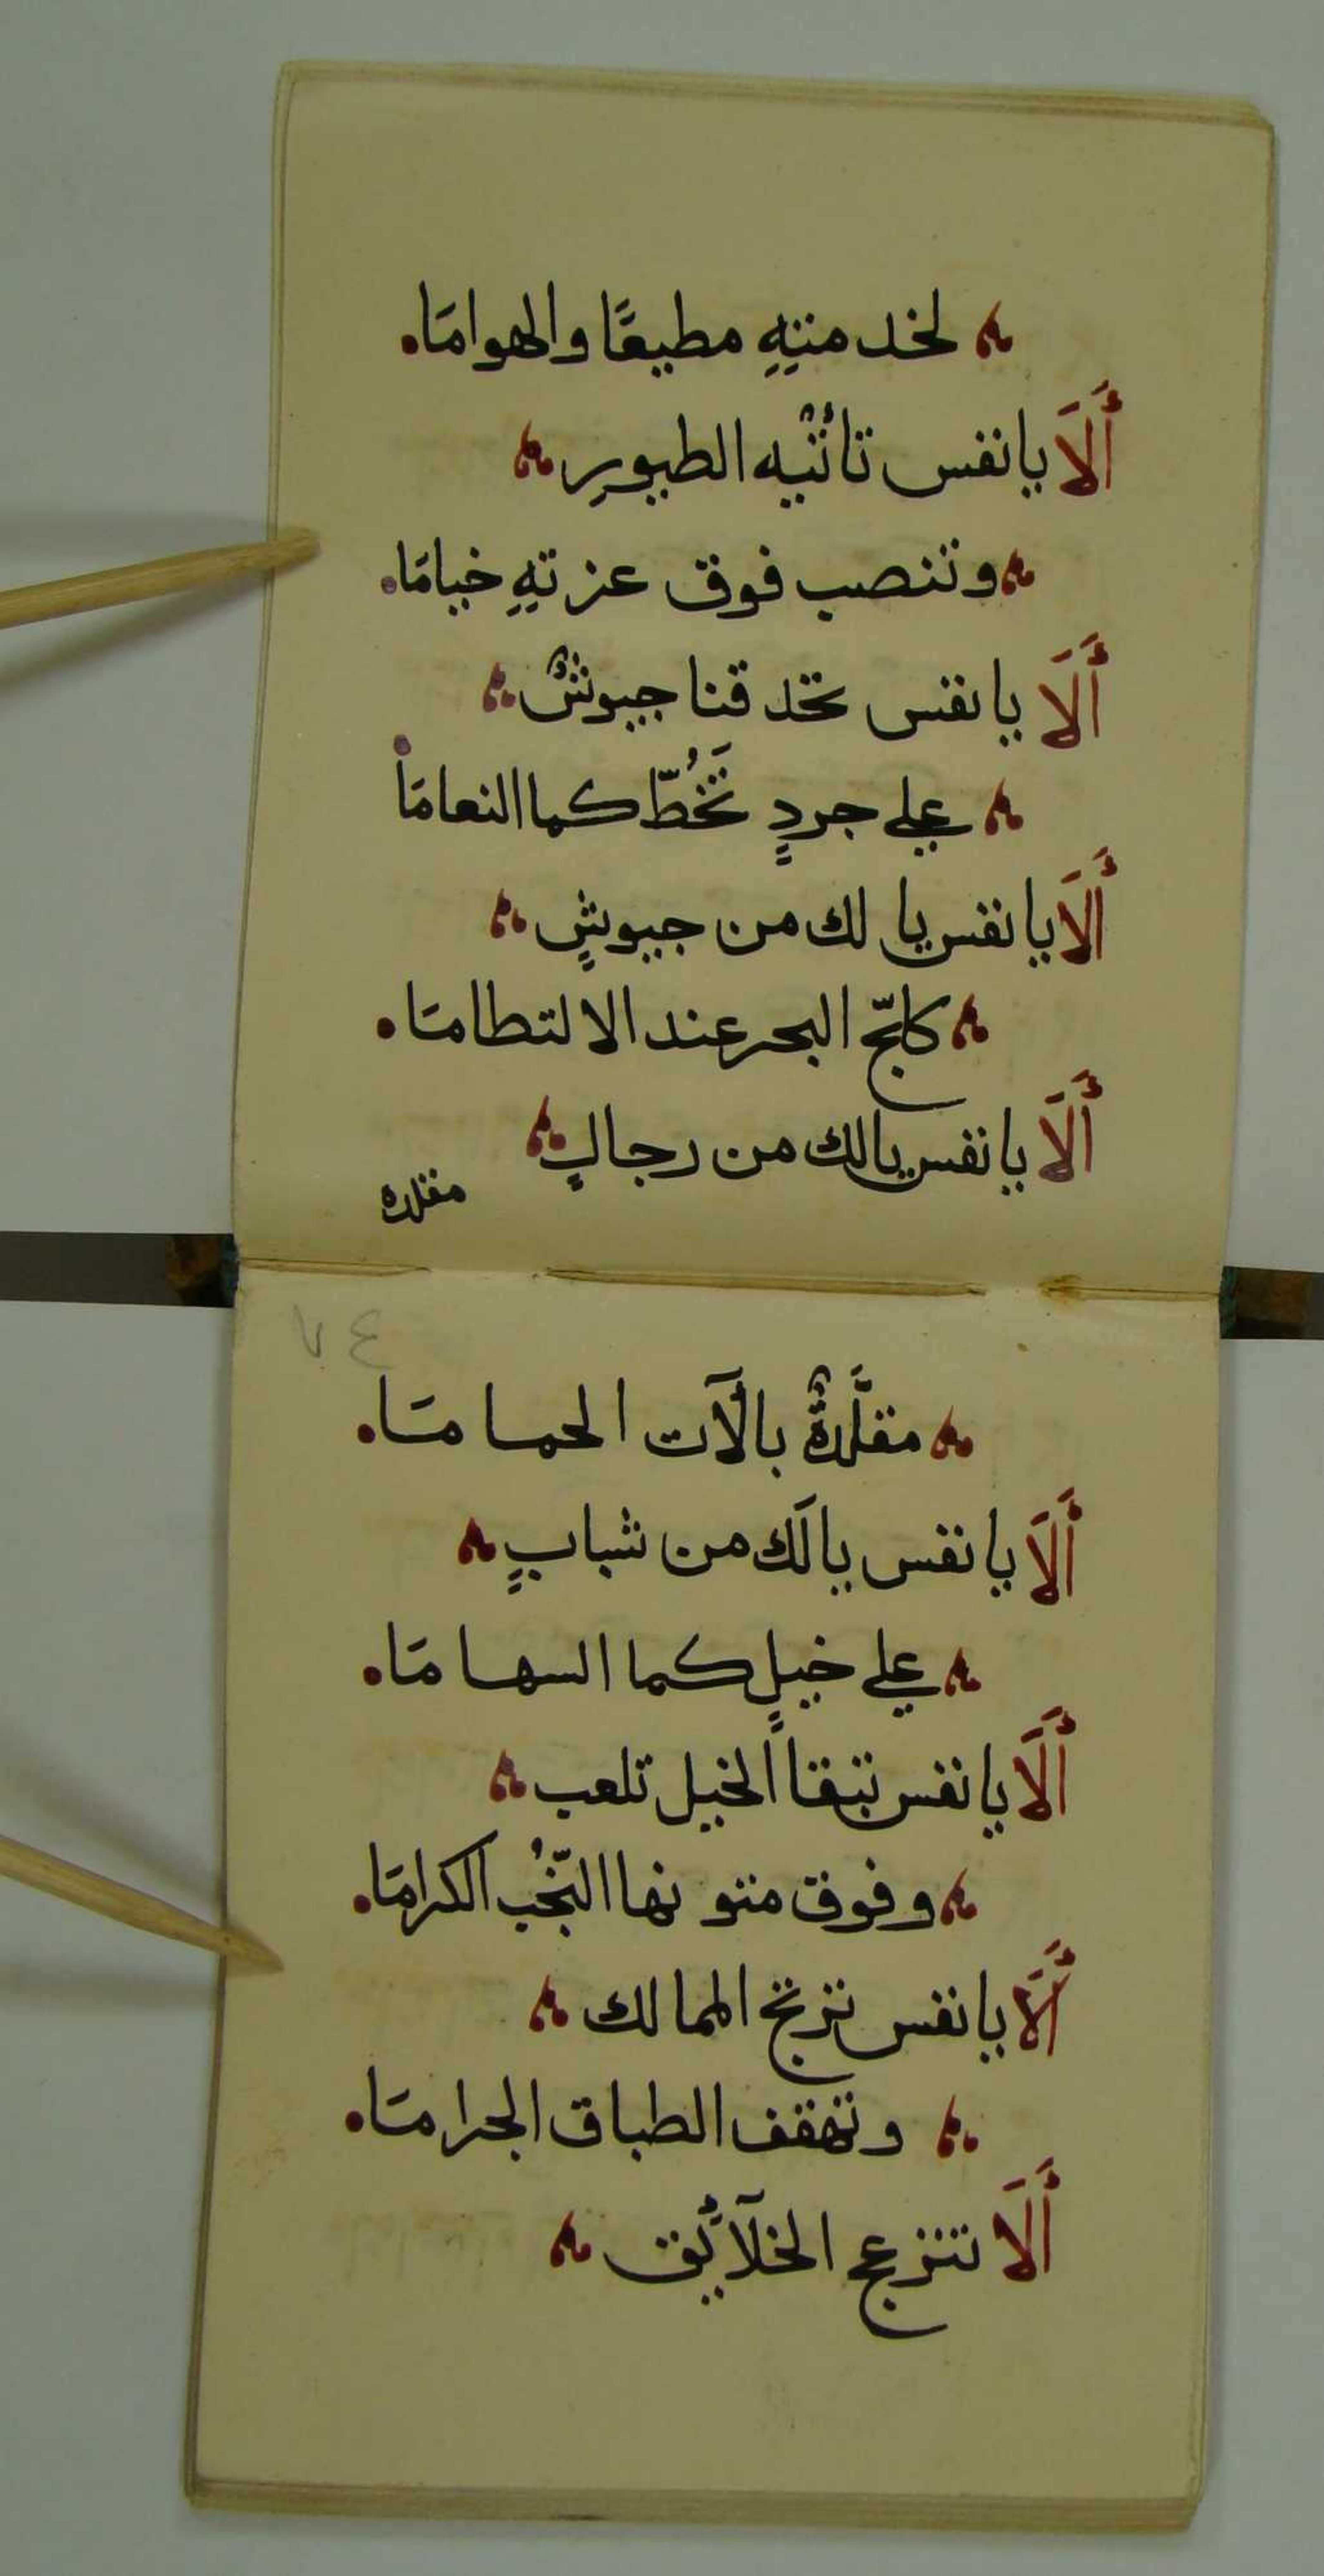 لخدمتهِ مطيعًا والهوامَا.
أَلَا يا نفس تأتيه الطيورِ
وتنصب فوق عزتهِ خيامَا.
أَلَا يا نفس تحدقنا جيوشٌ
علي جردٍ تَخُطّ كما النعامَا
أَلَا يا نفس يا لك من جيوشٍ
كلجّ البحر عند الالتطامَا.
أَلَا يا نفس يا لك من رجالٍ
مقلده
٧٤
مقلَّدةٌ بآلآت الحمامَا.
أَلَا يا نفس يا لَك من شبابٍ
علي خيلٍ كما السهامَا.
أَلَا يا نفس تبقا الخيل تلعب
وفوق متونها النّجُب الكرامَا.
أَلَا يا نفس ترتج الممالك
وتهقف الطباق الجرامَا.
أَلَا تنزعج الخلآئق